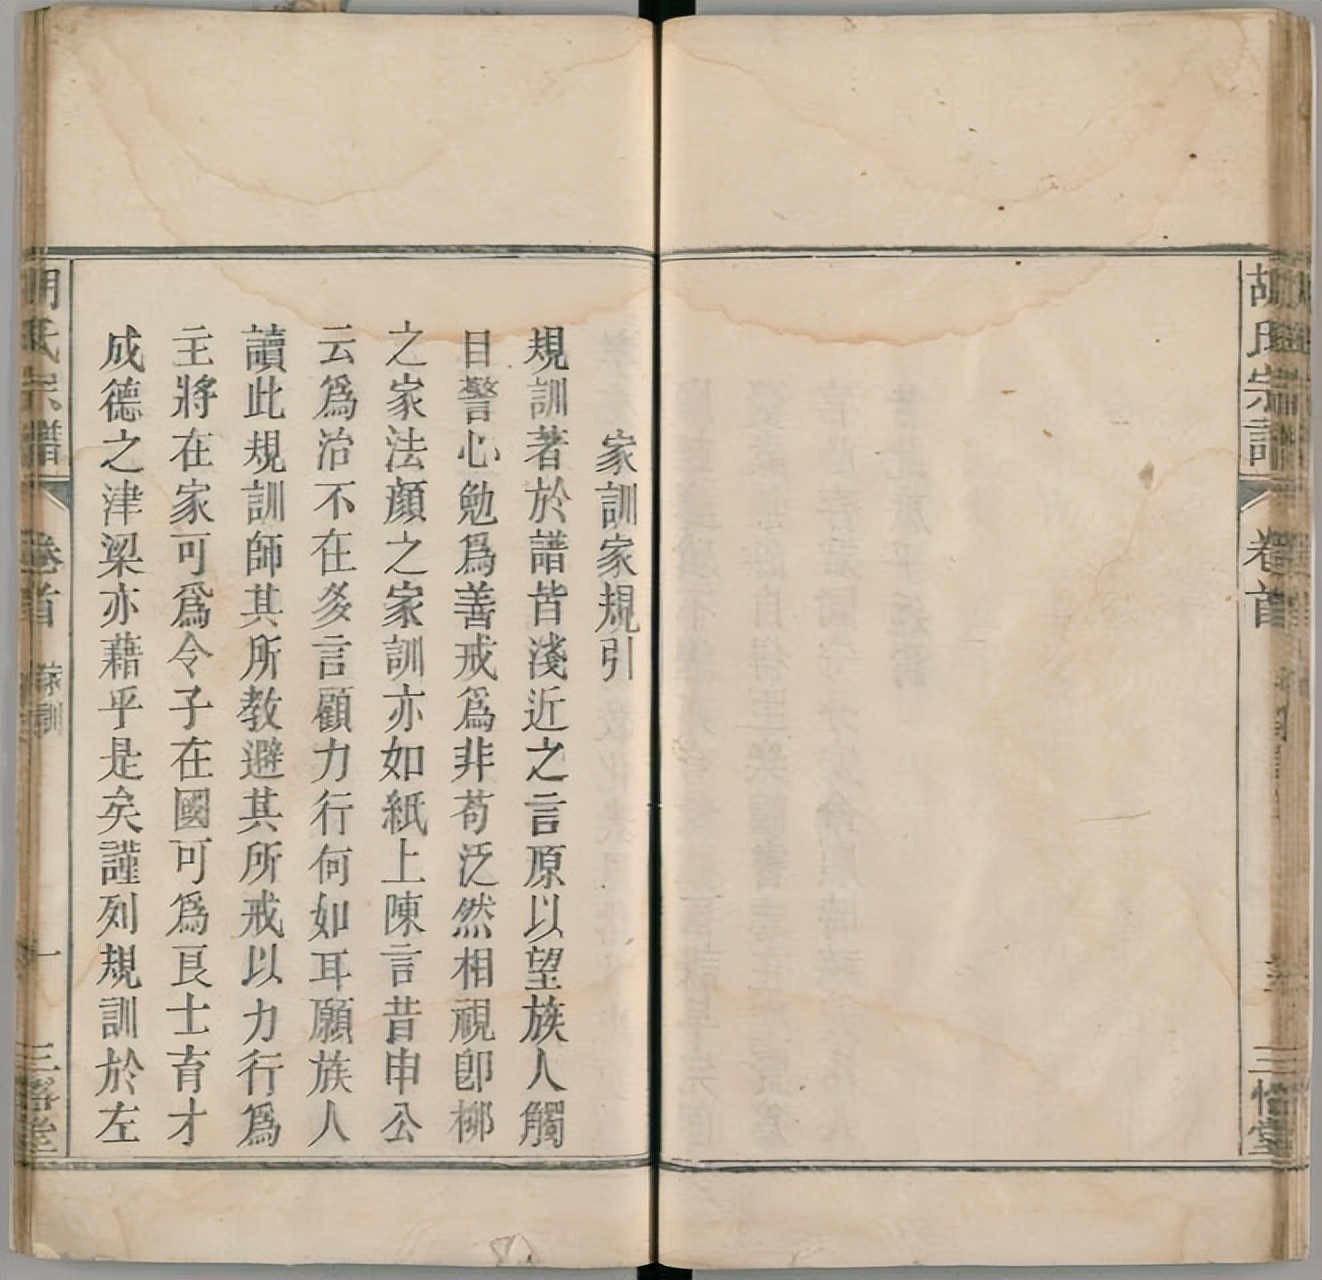 胡氏宗譜
卷首
家訓家規引
規訓著於譜皆淺近之言原以望族人觸
目警心勉爲善戒爲非苟泛然相視卽柳
之家法顏之家訓亦如紙上陳言昔申公
云爲治不在多言顧力行何如耳願族人
讀此規訓師其所教避其所戒以力行爲
主將在家可爲令子在國可爲良士育才
成德之津梁亦藉乎是矣謹列規訓於左
胡氏宗譜
卷首
家訓
一